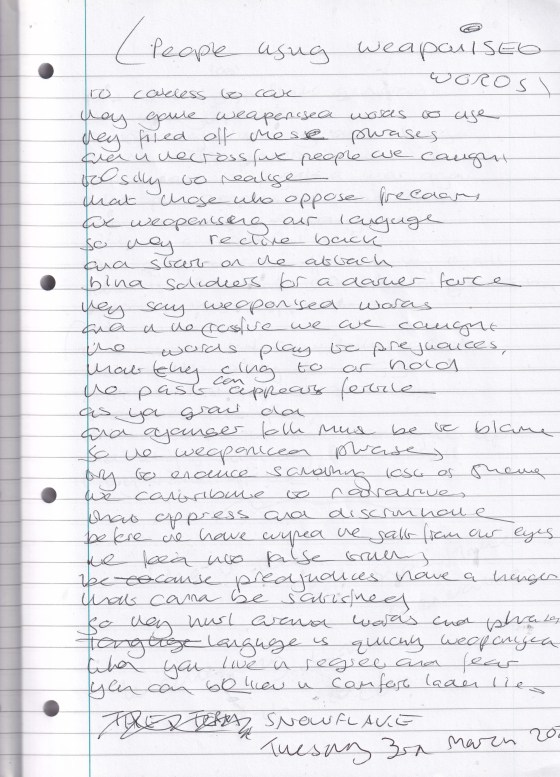 (People using weaponised
words)
to careless to care
they game weaponised words to use
they fired off these phrases
and in the crossfire people are caught
to silly to realise
that those who oppose freedom
are weaponising our language
so they recline back
and start on the attack
blind soldiers for a darker force
they say weaponised words
and in the crossfire we are caught
the words play to prejudices
that they cling to or hold
the past can appears fertile
as you grow old
and younger folk must be to blame
so the weaponised phrases
try to enduce something of shame
we contribute to narratives
that oppress and discriminate
before we have wiped the salt from our eyes
we lean into false
because preadjudices have a hunger
that canna be satisfied
so they hurl around words and phrases
language language is quickly weaponised
when you live in regret and fear
you can believe in comfort laden lies
SNOWFLAKE
Tuesday 3rd March